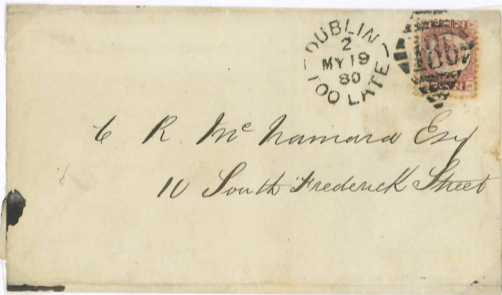 DUBLIN
2
MY 19
80
TOO LATE
186
C R. McNamara Esq
10 South Frederick Street